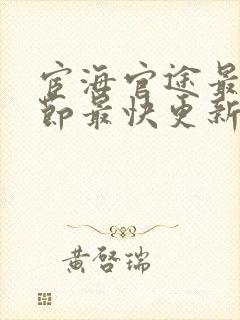 宦海官途最
节最快更新
黄启瑞